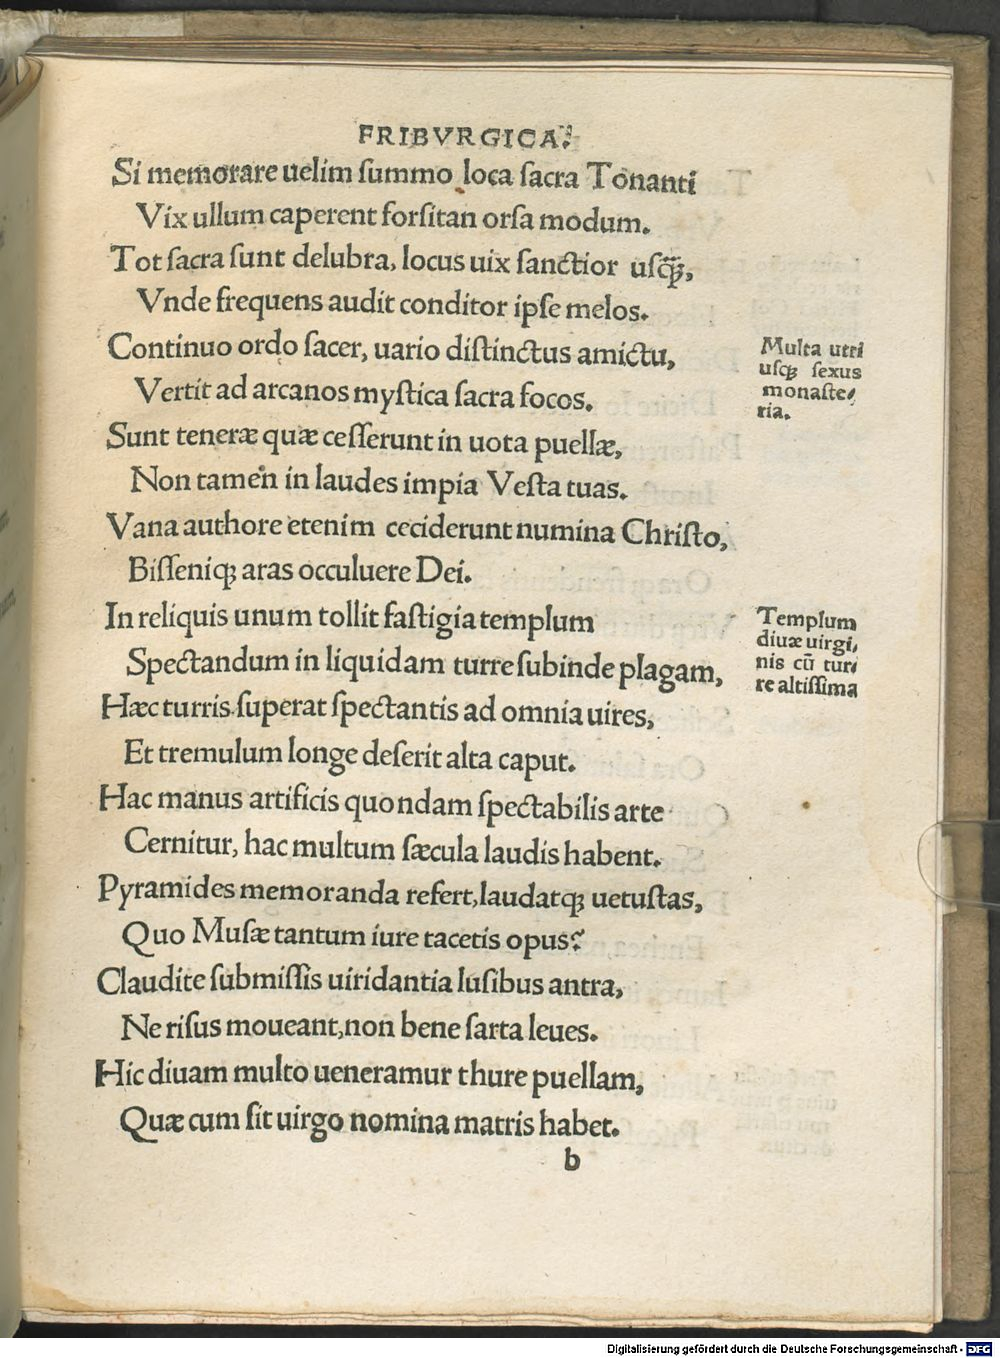 FRIBVRGICA.
Si memorare uelim ſummo loca ſacra Tonanti
Vix ullum caperent forſitan orſa modum.
Tot ſacra ſunt delubra, locus uix ſanctior uſq̃ꝫ,
Vnde frequens audit conditor ipſe melos.
Continuo ordo ſacer, uario diſtinctus amictu,
Vertit ad arcanos myſtica ſacra focos.
Sunt teneræ quæ ceſſerunt in uota puellæ,
Non tamen in laudes impia Veſta tuas.
Vana authore etenim ceciderunt numina Chriſto,
Biſſeniqꝫ aras occuluere Dei.
In reliquis unum tollit faſtigia templum
Spectandum in liquidam turre ſubinde plagam,
Hæc turris ſuperat ſpectantis ad omnia uires,
Et tremulum longe deſerit alta caput.
Hac manus artificis quondam ſpectabilis arte
Cernitur, hac multum ſæcula laudis habent.
Pyramides memoranda refert, laudatqꝫ uetuſtas,
Quo Muſæ tantum iure tacetis opus?
Claudite ſubmiſſis uiridantia luſibus antra,
Ne riſus moueant, non bene ſarta leues.
Hic diuam multo ueneramur thure puellam,
Quæ cum ſit uirgo nomina matris habet.
b
Multa utri
uſqꝫ ſexus
monaſte/
ria.
Templum
diuæ uirgi/
nis cū tur/
re altiſſima
Digitalisierung gefördert durch die Deutsche Forschungsgemeinschaft - DFG